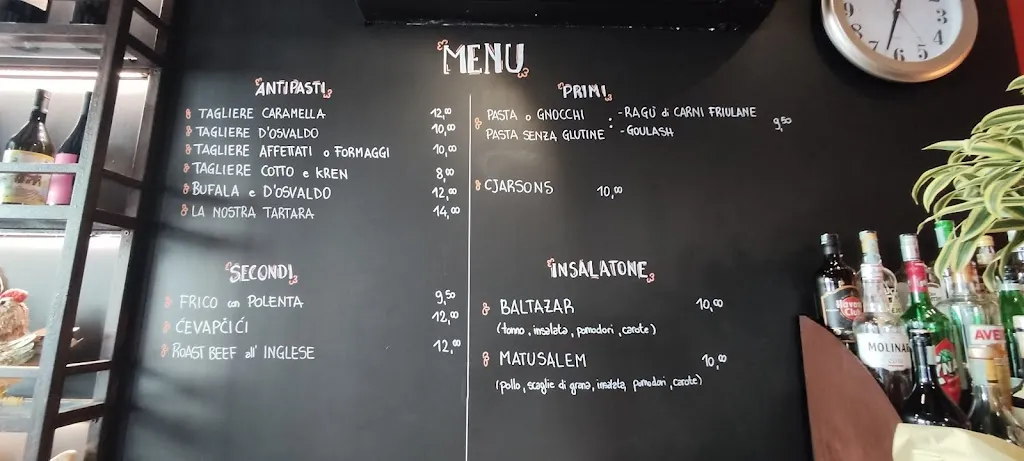 MENU
ANTIPASTI
TAGLIERE CARAMELLA 12,00
TAGLIERE D'OSVALDO 10,00
TAGLIERE AFFETTATI o FORMAGGI 10,00
TAGLIERE COTTO e KREN 8,00
BUFALA e D'OSVALDO 12,00
LA NOSTRA TARTARA 14,00
SECONDI
FRICO con POLENTA 9,50
ĆEVAPČIĆI 12,00
ROAST BEEF all' INGLESE 12,00
PRIMI
PASTA o GNOCCHI : - RAGÙ di CARNI FRIULANE 9,50
PASTA SENZA GLUTINE - GOULASH
CJARSONS 10,00
INSALATONE
BALTAZAR 10,00
(tonno, insalata, pomodori, carote)
MATUSALEM 10,00
(pollo, scaglie di grana, insalata, pomodori, carote)
12 1 2 3 4 5 6 7 8 9
MOLINARI
AVER